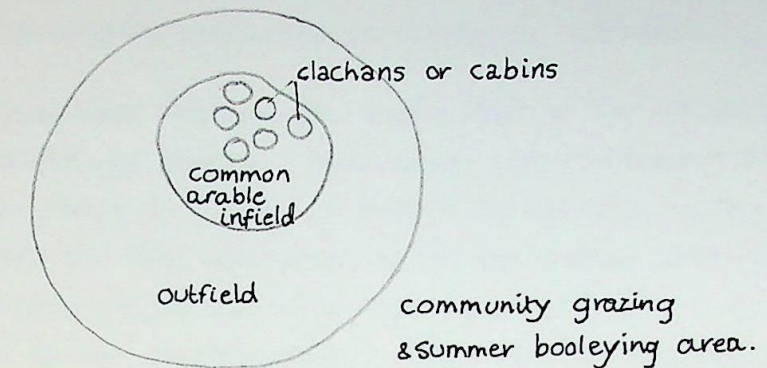 clachans or cabins
common
arable
infield
outfield
community grazing
& summer booleying area.